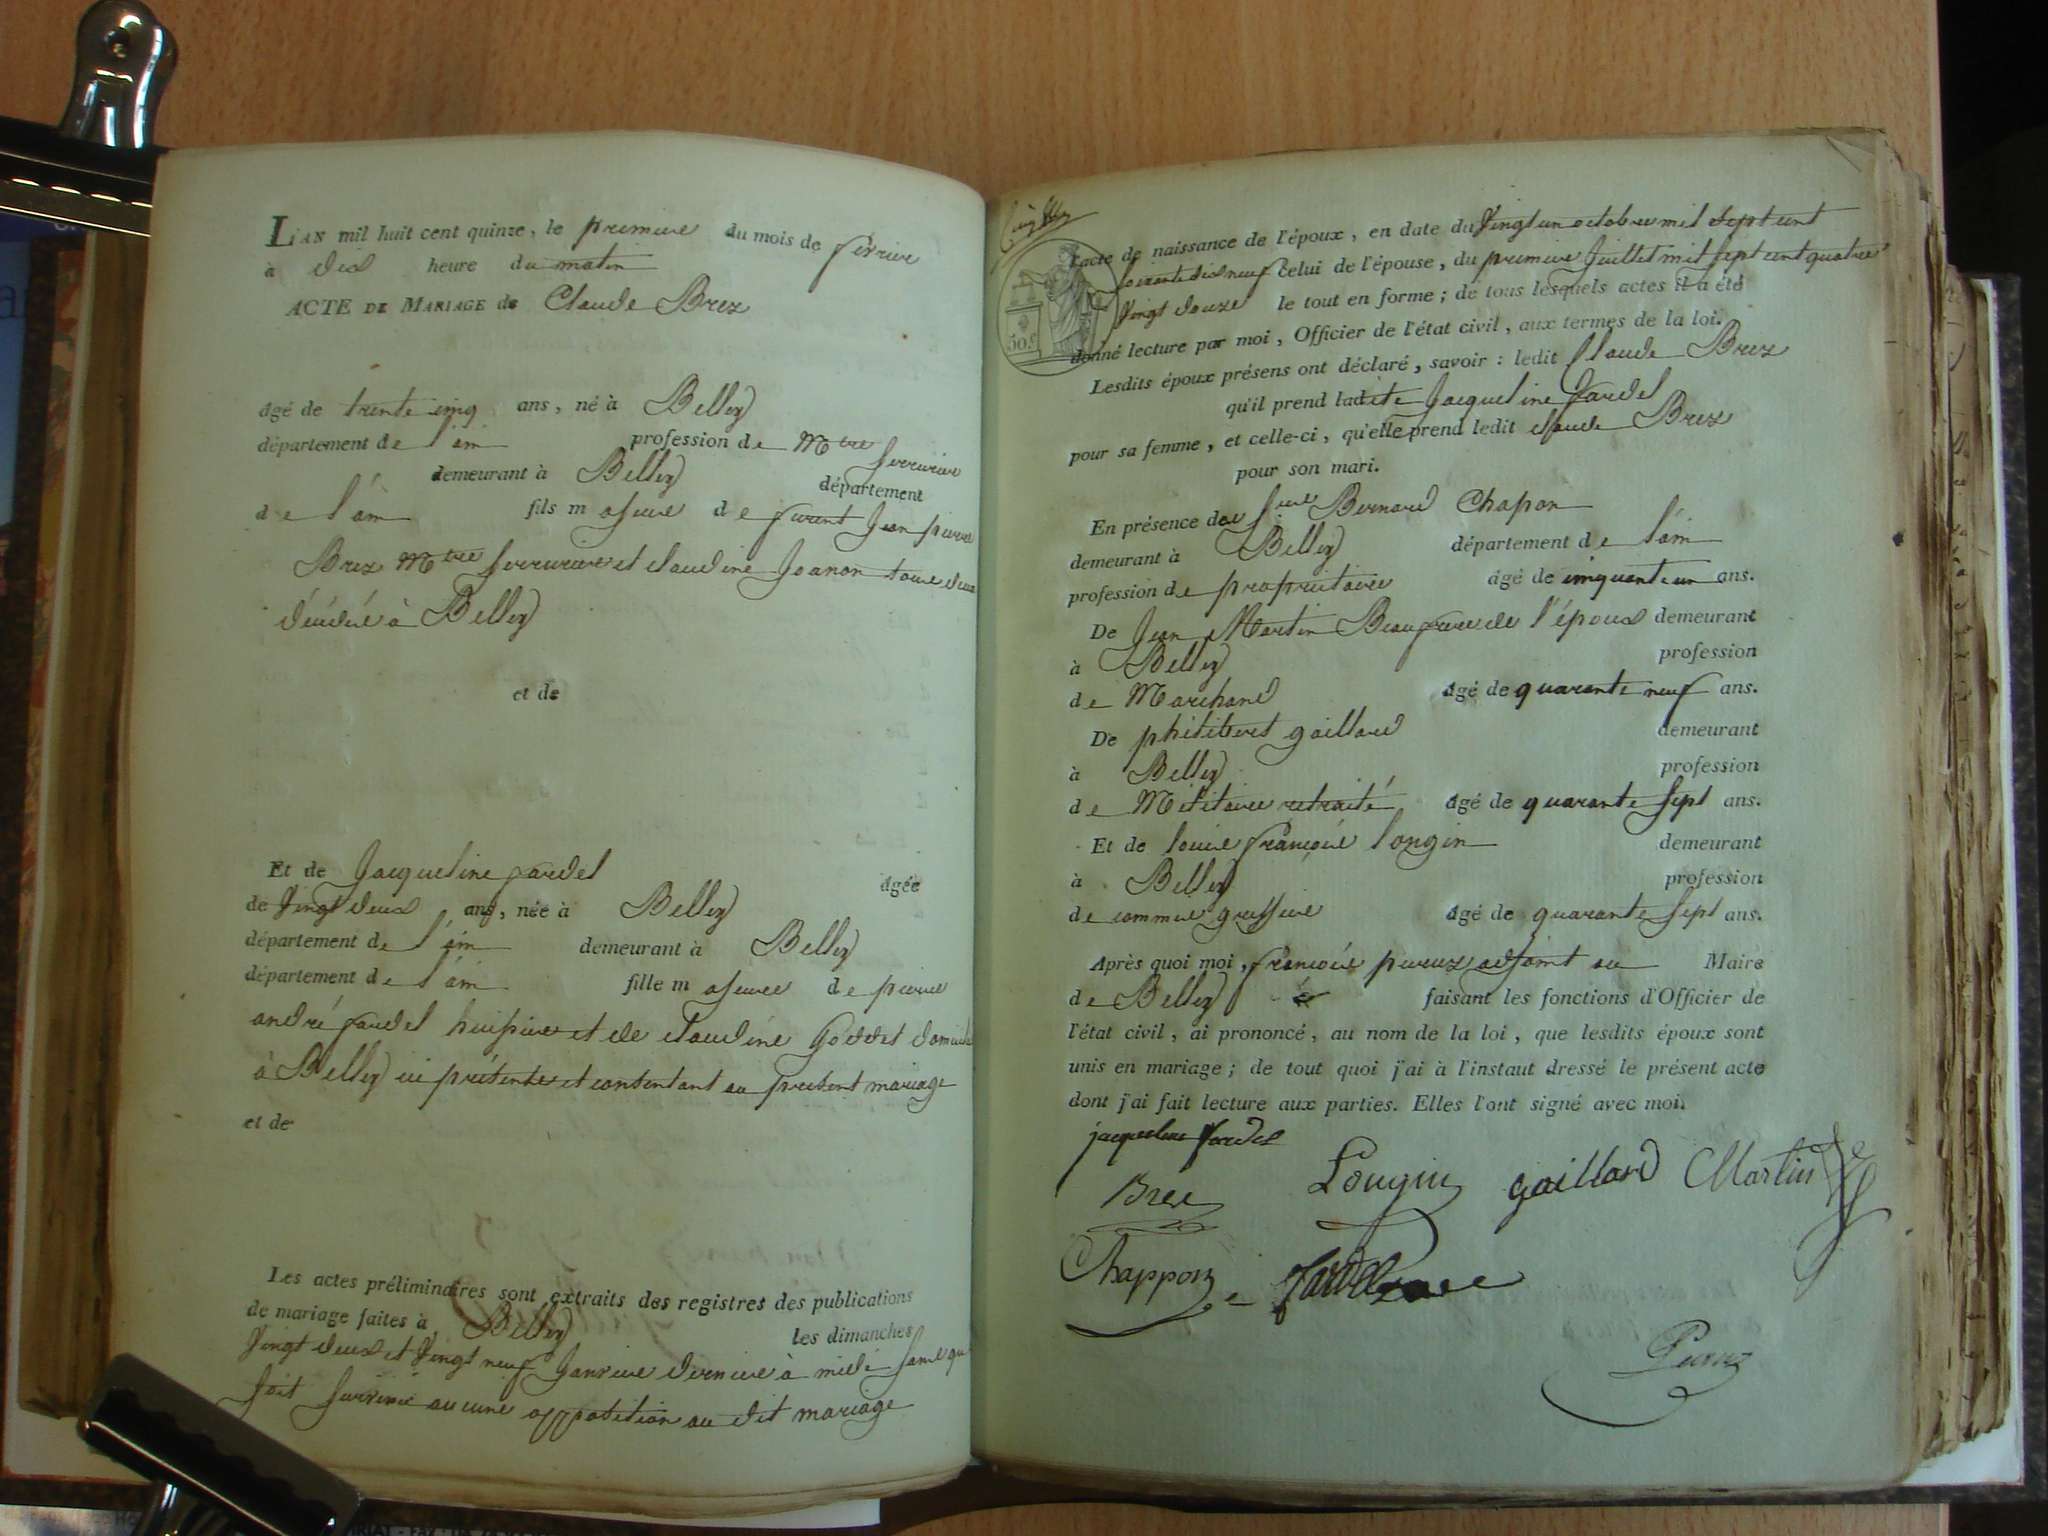 L'AN mil huit cent quinze, le premier du mois de fevrier
à dix heure du matin
ACTE DE MARIAGE de Claude Brex
âgé de trente cinq ans, né à Belley
département de l'ain profession de Mtre Serrurier
demeurant à Belley département
de l'ain fils majeur de feu Jean pierre
Brex Mtre Serrurier et claudine Joanon tous deux
décédé à Belley
et de
Et de Jacqueline fardel âgée
de Vingt deux ans, née à Belley
département de l'ain demeurant à Belley
département de l'ain fille majeure de pierre
andré fardel huissier et de claudine Goddet domicilié
à Belley ici présente et consentant au présent mariage
et de
Les actes préliminaires sont extraits des registres des publications
de mariage faites à Belley les dimanches
Vingt deux et Vingt neuf Janvier dernier à midi sans qu
soit survenu aucune opposition au dit mariage
l'acte de naissance de l'époux, en date du Vingt un octobre mil sept cent
soixante dix neuf celui de l'épouse, du premier Juillet mil sept cent quatre
Vingt douze le tout en forme; de tous lesquels actes il a été
donné lecture par moi, Officier de l'état civil, aux termes de la loi.
Lesdits époux présens ont déclaré, savoir: ledit Claude Brex
qu'il prend ladite Jacqueline fardel
pour sa femme, et celle-ci, qu'elle prend ledit claude Brex
pour son mari.
50 c
En présence de Sieur Bernard Chapon
demeurant à Belley département de l'ain
profession de propriétaire âgé de cinquante un ans.
De Jean Martin Beaufrere de l'époux demeurant
à Belley profession
de Marchand âgé de quarante neuf ans.
De philibert gaillard demeurant
à Belley profession
de Militaire retraité âgé de quarante Sept ans.
Et de louis françois longin demeurant
à Belley profession
de commis greffier âgé de quarante Sept ans.
Après quoi moi, françois peroux adjoint au Maire
de Belley faisant les fonctions d'Officier de
l'état civil, ai prononcé, au nom de la loi, que lesdits époux sont
unis en mariage; de tout quoi j'ai à l'instaut dressé le présent acte
dont j'ai fait lecture aux parties. Elles l'ont signé avec moi.
jacqueline fardel
Brex Longin gaillard Martin
Chappon fardel pere